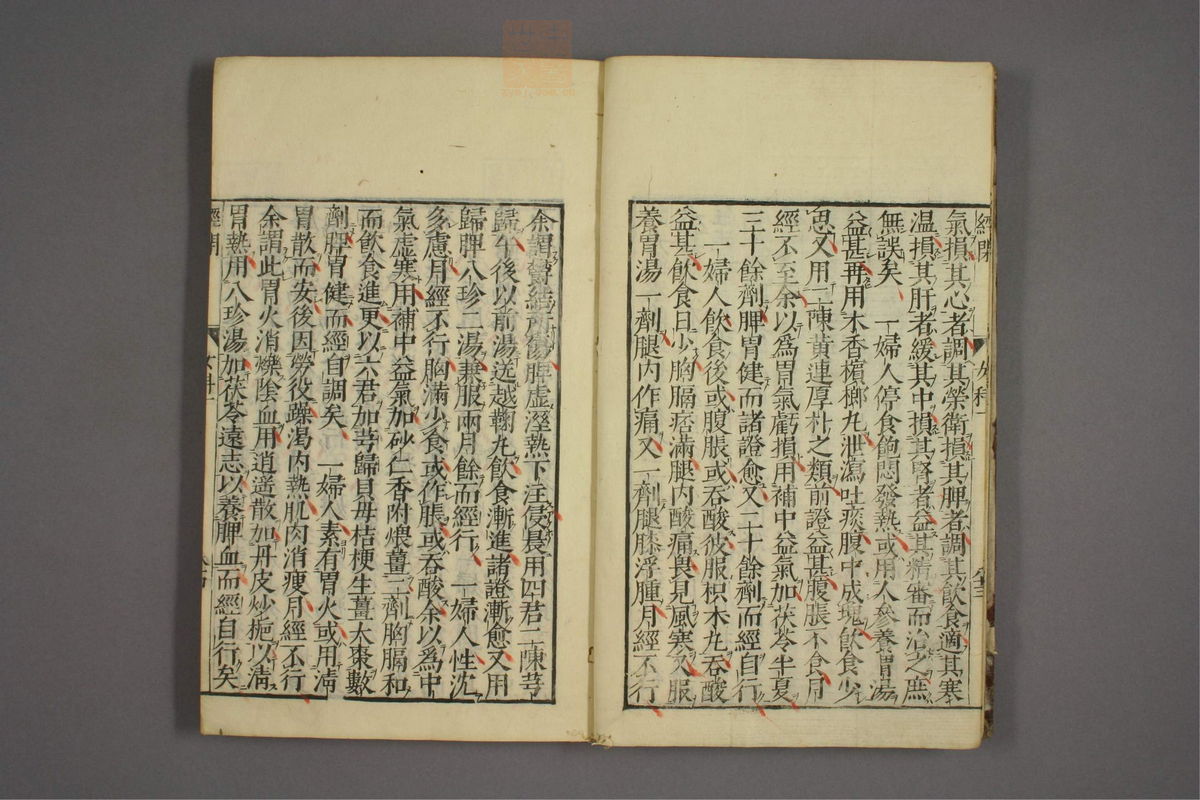 氣損其心者調其榮衛損其脾者調其飲食適其寒
溫損其肝者緩其中損其腎者益其精審而治之庶
無誤矣 一婦人停食飽悶發熱或用人參養胃湯
益甚再用木香檳榔丸泄瀉吐痰腹中成塊飲食少
思又用二陳黃連厚朴之類前證益甚腹脹不食月
經不至余以爲胃氣虧損用補中益氣加茯苓半夏
三十餘劑脾胃健而諸證愈又二十餘劑而經自行
一婦人飲食後或腹脹或吞酸彼服枳朮丸吞酸
益甚飲食日少胸膈痞滿腿內酸痛畏見風寒又服
養胃湯一劑腿內作痛又一劑腿膝浮腫月經不行
余謂鬱結所傷脾虛溼熱下注侵晨用四君二陳芎
歸午後以前湯送越鞠丸飲食漸進諸證漸愈又用
歸脾八珍二湯兼服兩月餘而經行 一婦人性沈
多慮月經不行胸滿少食或作脹或吞酸余以爲中
氣虛寒用補中益氣加砂仁香附煨薑二劑胸膈和
而飲食進更以六君加芎歸貝母桔梗生薑大棗數
劑脾胃健而經自調矣 一婦人素有胃火或用淸
胃散而安後因勞役躁渴內熱肌肉消瘦月經不行
余謂此胃火消爍陰血用逍遙散加丹皮炒梔以淸
胃熱用八珍湯加茯苓遠志以養脾血而經自行矣